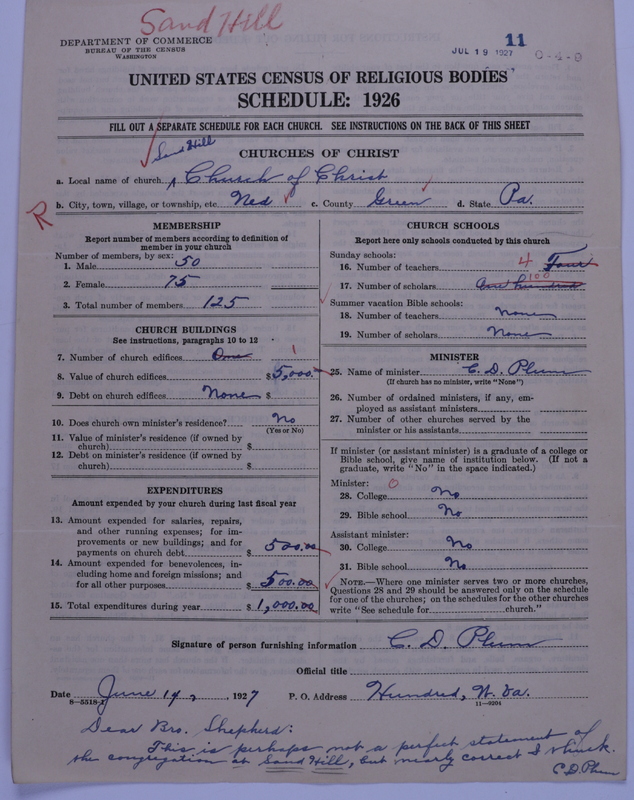 Sand Hill
DEPARTMENT OF COMMERCE
BUREAU OF THE CENSUS
WASHINGTON
11
JUL 19 1927
0-4-9
UNITED STATES CENSUS OF RELIGIOUS BODIES
SCHEDULE: 1926
FILL OUT A SEPARATE SCHEDULE FOR EACH CHURCH. SEE INSTRUCTIONS ON THE BACK OF THIS SHEET
Sand Hill
CHURCHES OF CHRIST
a. Local name of church Church of Christ
b. City, town, village, or township, etc. Ned c. County Green d. State Pa.
R
MEMBERSHIP
Report number of members according to definition of
member in your church
Number of members, by sex:
1. Male 50
2. Female 75
3. Total number of members 125
CHURCH BUILDINGS
See instructions, paragraphs 10 to 12
7. Number of church edifices One 1
8. Value of church edifices $5,000.
9. Debt on church edifices None $
10. Does church own minister's residence? No
(Yes or No)
11. Value of minister's residence (if owned by
church) $
12. Debt on minister's residence (if owned by
church) $
EXPENDITURES
Amount expended by your church during last fiscal year
13. Amount expended for salaries, repairs,
and other running expenses; for im-
provements or new buildings; and for
payments on church debt $ 500.00
14. Amount expended for benevolences, in-
cluding home and foreign missions; and
for all other purposes $ 500.00
15. Total expenditures during year $ 1,000.00
CHURCH SCHOOLS
Report here only schools conducted by this church
Sunday schools:
16. Number of teachers 4 Four
17. Number of scholars One hundred 100
Summer vacation Bible schools:
18. Number of teachers None
19. Number of scholars None
MINISTER
25. Name of minister C. D. Plum
(If church has no minister, write "None")
26. Number of ordained ministers, if any, em-
ployed as assistant ministers
27. Number of other churches served by the
minister or his assistants
If minister (or assistant minister) is a graduate of a college or
Bible school, give name of institution below. (If not a
graduate, write "No" in the space indicated.)
Minister: 0
28. College No
29. Bible school No
Assistant minister:
30. College No
31. Bible school No
NOTE.—Where one minister serves two or more churches,
Questions 28 and 29 should be answered only on the schedule
for one of the churches; on the schedules for the other churches
write "See schedule for church."
Signature of person furnishing information C. D. Plum
Official title
Date June 14, 1927 P. O. Address Hundred, W. Va.
8—5518-F 11—9204
Dear Bro. Shepherd:
This is perhaps not a perfect statement of
the congregation at Sand Hill, but nearly correct I think.
C. D. Plum